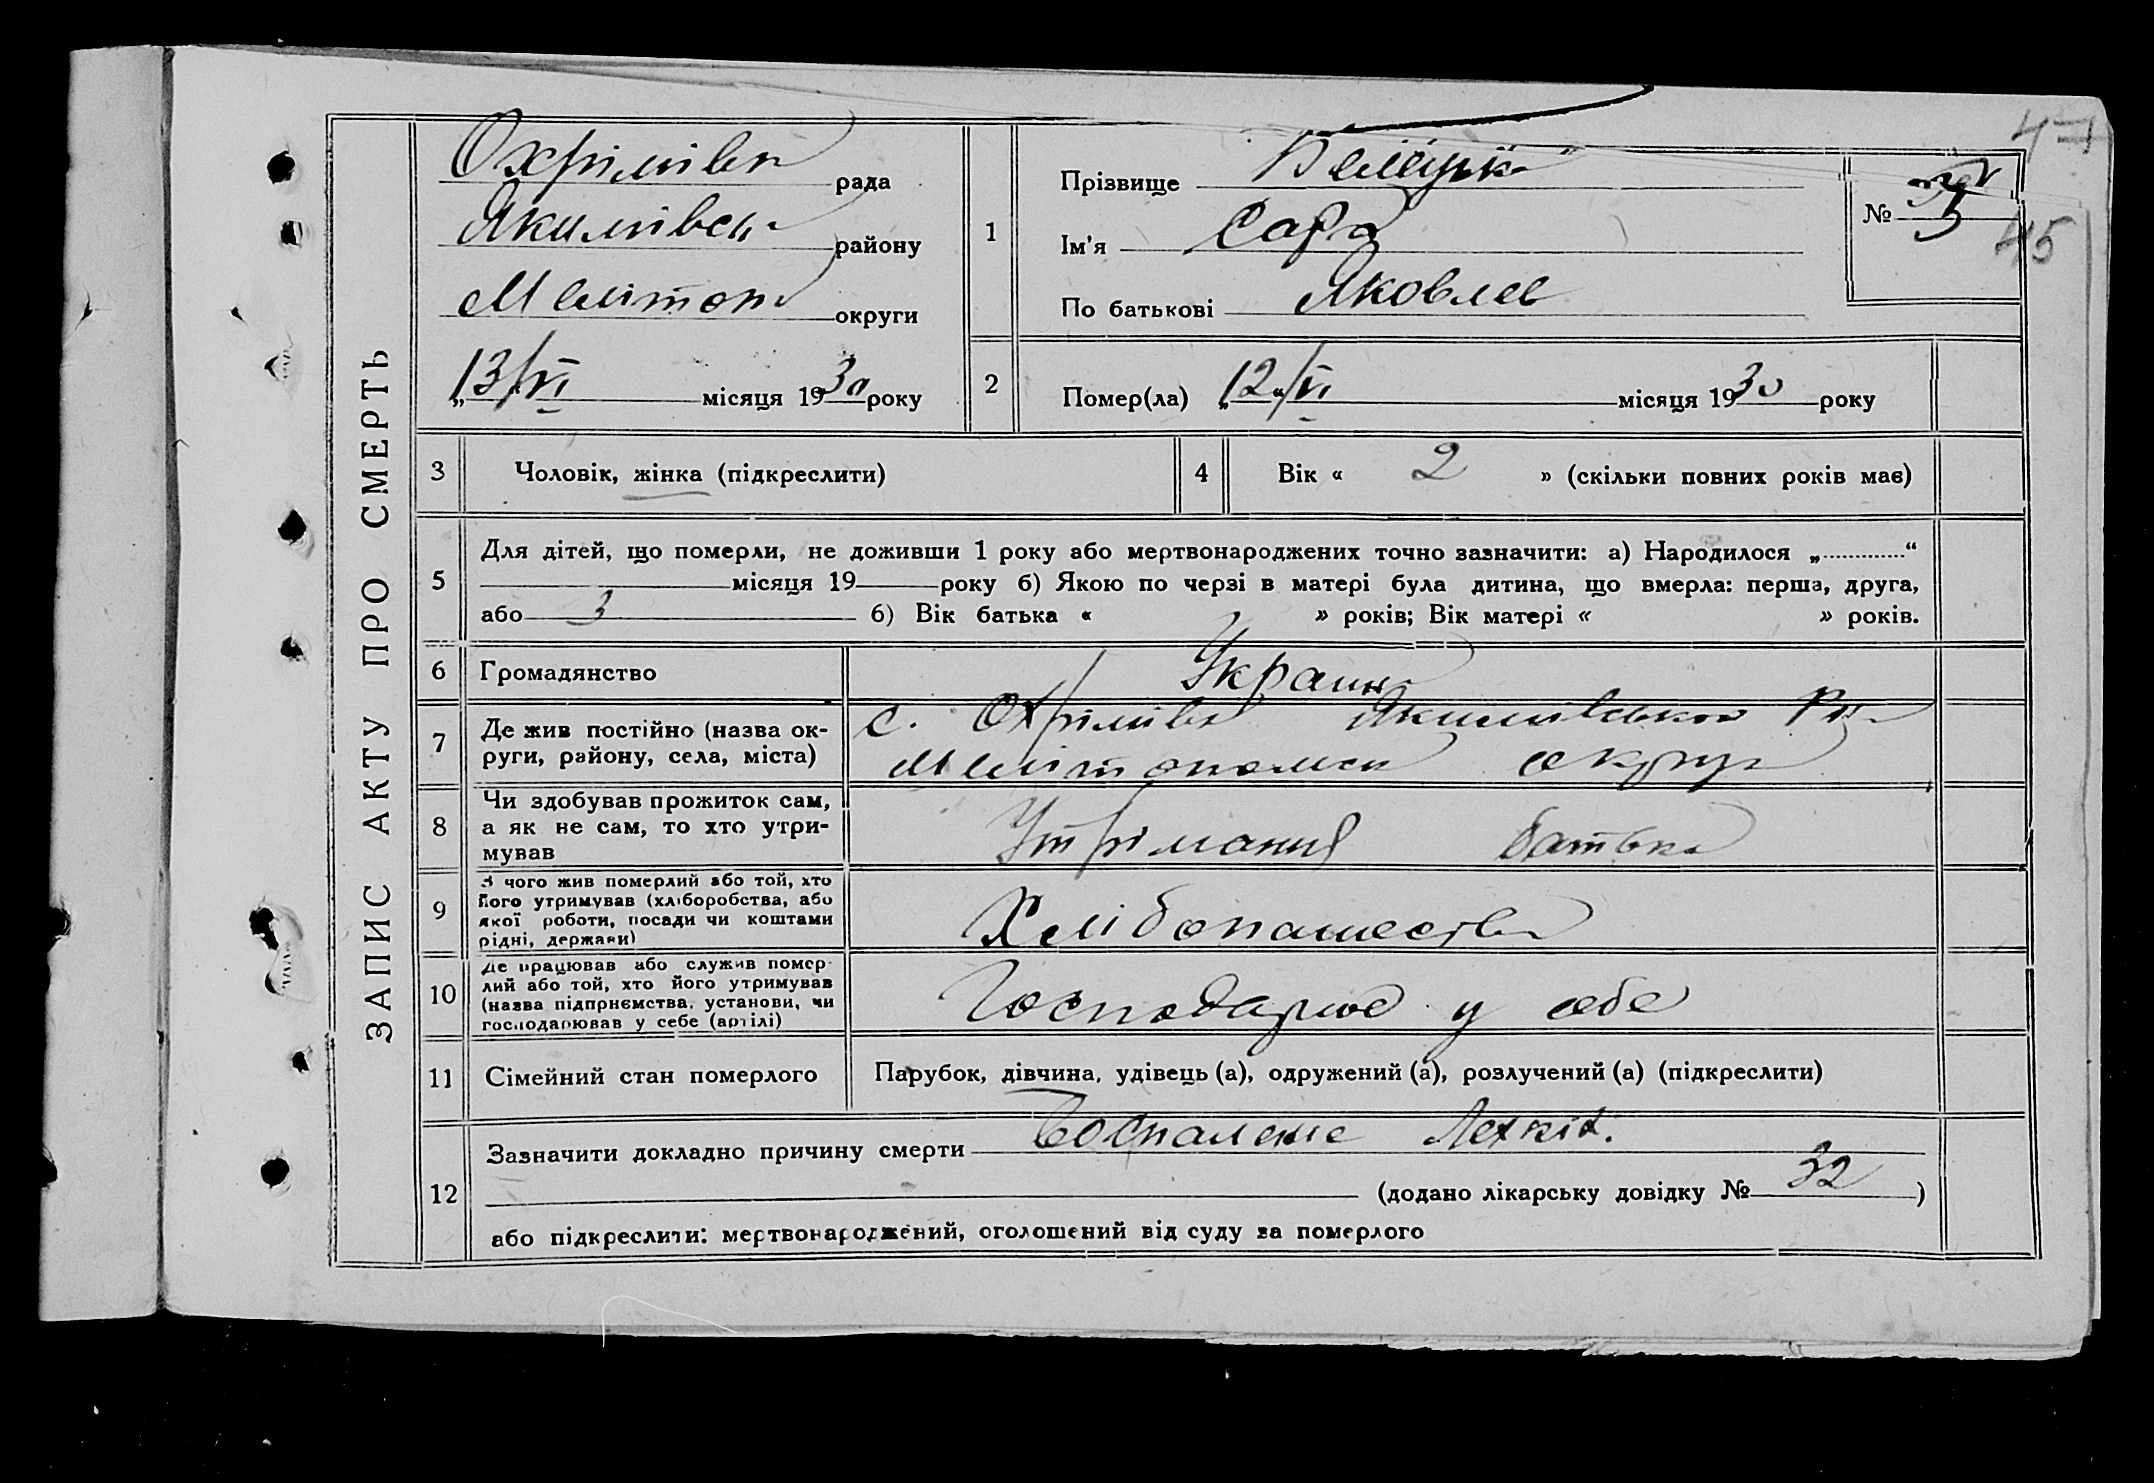 47
45
ЗАПИС АКТУ ПРО СМЕРТЬ
Охрімівк рада
Якимівськ району
Мелітоп округи
„13/VI місяця 1930 року
1
Прізвище
Ім'я Сара
По батькові Яковлев
№ 5
2
Помер(ла) „12“/VI місяця 1930 року
3 Чоловік, жінка (підкреслити)
4 Вік « 2 » (скільки повних років має)
5
Для дітей, що померли, не доживши 1 року або мертвонароджених точно зазначити: а) Народилося „............“
місяця 19 року б) Якою по черзі в матері була дитина, що вмерла: перша, друга,
або 3 б) Вік батька « » років; Вік матері « » років.
6 Громадянство Украин
7
Де жив постійно (назва ок-
руги, району, села, міста)
с. Охрімівк Якимівського Р-н
Мелітопольск округ
8
Чи здобував прожиток сам,
а як не сам, то хто утри-
мував
Утрімання батька
9
З чого жив померлий або той, хто
його утримував (хліборобства, або
якої роботи, посади чи коштами
рідні, держави)
Хлібопашеств
10
Де працював або служив помер-
лий або той, хто його утримував
(назва підприємства, установи, чи
господарював у себе (артілі)
Господарює у себе
11 Сімейний стан померлого
Парубок, дівчина, удівець (а), одружений (а), розлучений (а) (підкреслити)
12
Зазначити докладно причину смерти Воспаление Легкіх.
(додано лікарську довідку № 32)
або підкреслити: мертвонароджений, оголошений від суду за померлого